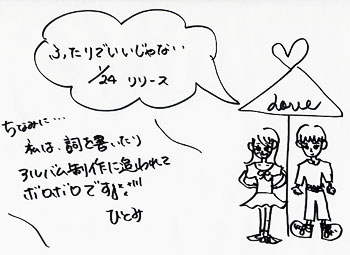 ふたりでいいじゃない
1/24 リリース
Love
ちなみに…
私は、詞を書いたり
アルバム制作に追われて
ボロボロですｫ!!!
ひとみ